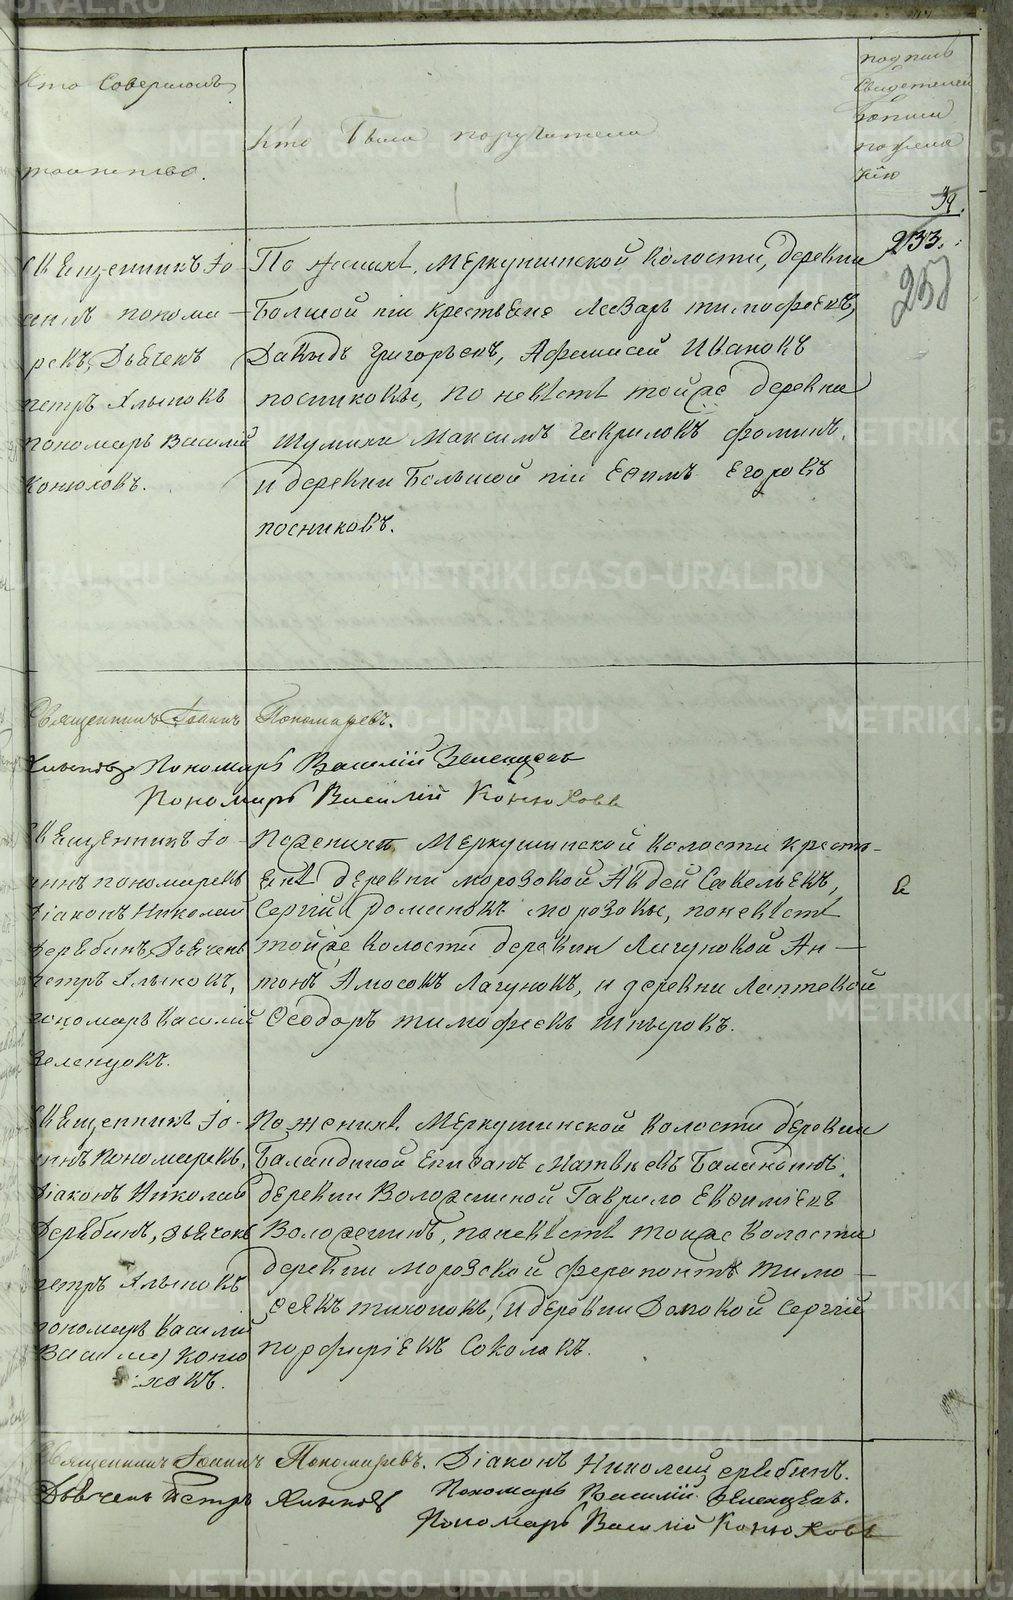 Кто Совершалъ
таинство.
Кто были поручители
подпись
свидетелей
записи
по желанію
39.
233.
Священникъ Іо-
аннъ понома-
ревъ, Дьячекъ
петръ Хлыновъ
пономарь Василій
Конюховъ.
По женихѣ, Меркушинской волости, деревни
Большой піи крестьяне Лазарь тимофеевъ,
Давидъ Григорьевъ, Афанасей Ивановъ
посниковы, по невѣстѣ тойже деревни
Шумихи Максимъ Гавриловъ фоминъ,
и деревни Большой піи Еѳимъ Егоровъ
посниковъ.
Священникъ Іоаннъ Пономаревъ.
Пономарь Василій Зеленцовъ
Пономарь Василій Конюховъ
Священникъ Іо-
аннъ пономаревъ
Діаконъ Николай
Дерябинъ, Дьячекъ
петръ Хлыновъ,
пономарь Василій
Зеленцовъ.
По женихѣ Меркушинской волости кресть-
янѣ деревни морозовой Авдей Савельевъ,
Сергій Романовъ морозовы, по невѣстѣ
тойже волости деревни Лагуновой Ан-
тонъ Амосовъ Лагуновъ, и деревни Лаптевой
Ѳеодоръ тимофеевъ
Священникъ Іо-
аннъ Пономаревъ,
Діаконъ Николай
Дерябинъ, дьячекъ
петръ Хлыновъ
пономарь Василій
Василій Коню
ховъ.
По женихѣ Меркушинской волости деревни
Баландиной Епифанъ Матвѣевъ Баландинъ,
деревни Воложениной Гаврило Евѳиміевъ
Воложенинъ, по невѣстѣ тойже волости
деревни морозовой ферапонтъ тимо-
ѳеевъ тихоновъ, и деревни Сергій
порфиріевъ Соколовъ.
Священникъ Іоаннъ Пономаревъ. Діаконъ Николай Дерябинъ.
Дьячекъ Петръ Хлыновъ Пономарь Василій Зеленцовъ.
Пономарь Василій Конюховъ
METRIKI.GASO-URAL.RU